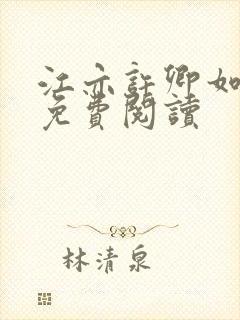 江亦許卿如
免費閱讀
林清泉